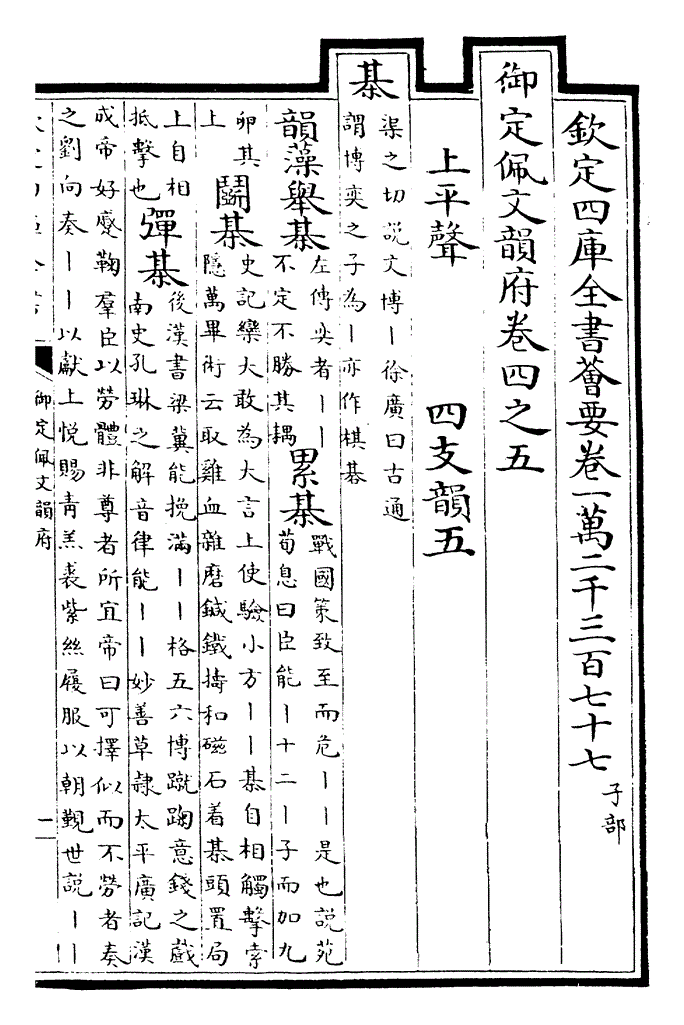 欽定四庫全書薈要卷一萬二千三百七十七 子部
御定佩文韻府卷四之五
上平聲 四支韻五
棊
渠之切説文博丨徐廣曰古通
謂博奕之子為丨亦作棋碁
韻藻舉棊 左傳奕者丨丨
不定不勝其耦 累棊 戰國策致至而危丨丨是也説苑
荀息曰臣能丨十二丨子而加九
卵其
上 鬭棊 史記欒大敢為大言上使驗小方丨丨棊自相觸擊索
隱萬畢術云取雞血雜磨鍼鐵擣和磁石着棊頭置局
上自相
抵擊也 彈棊 後漢書梁冀能挽滿丨丨格五六博蹴踘意錢之戲
南史孔琳之解音律能丨丨妙善草隸太平廣記漢
成帝好蹙鞠羣臣以勞體非尊者所宜帝曰可擇似而不勞者奏
之劉向奏丨丨以獻上悦賜青羔裘紫絲履服以朝覲世説丨丨
御定佩文韻府 一